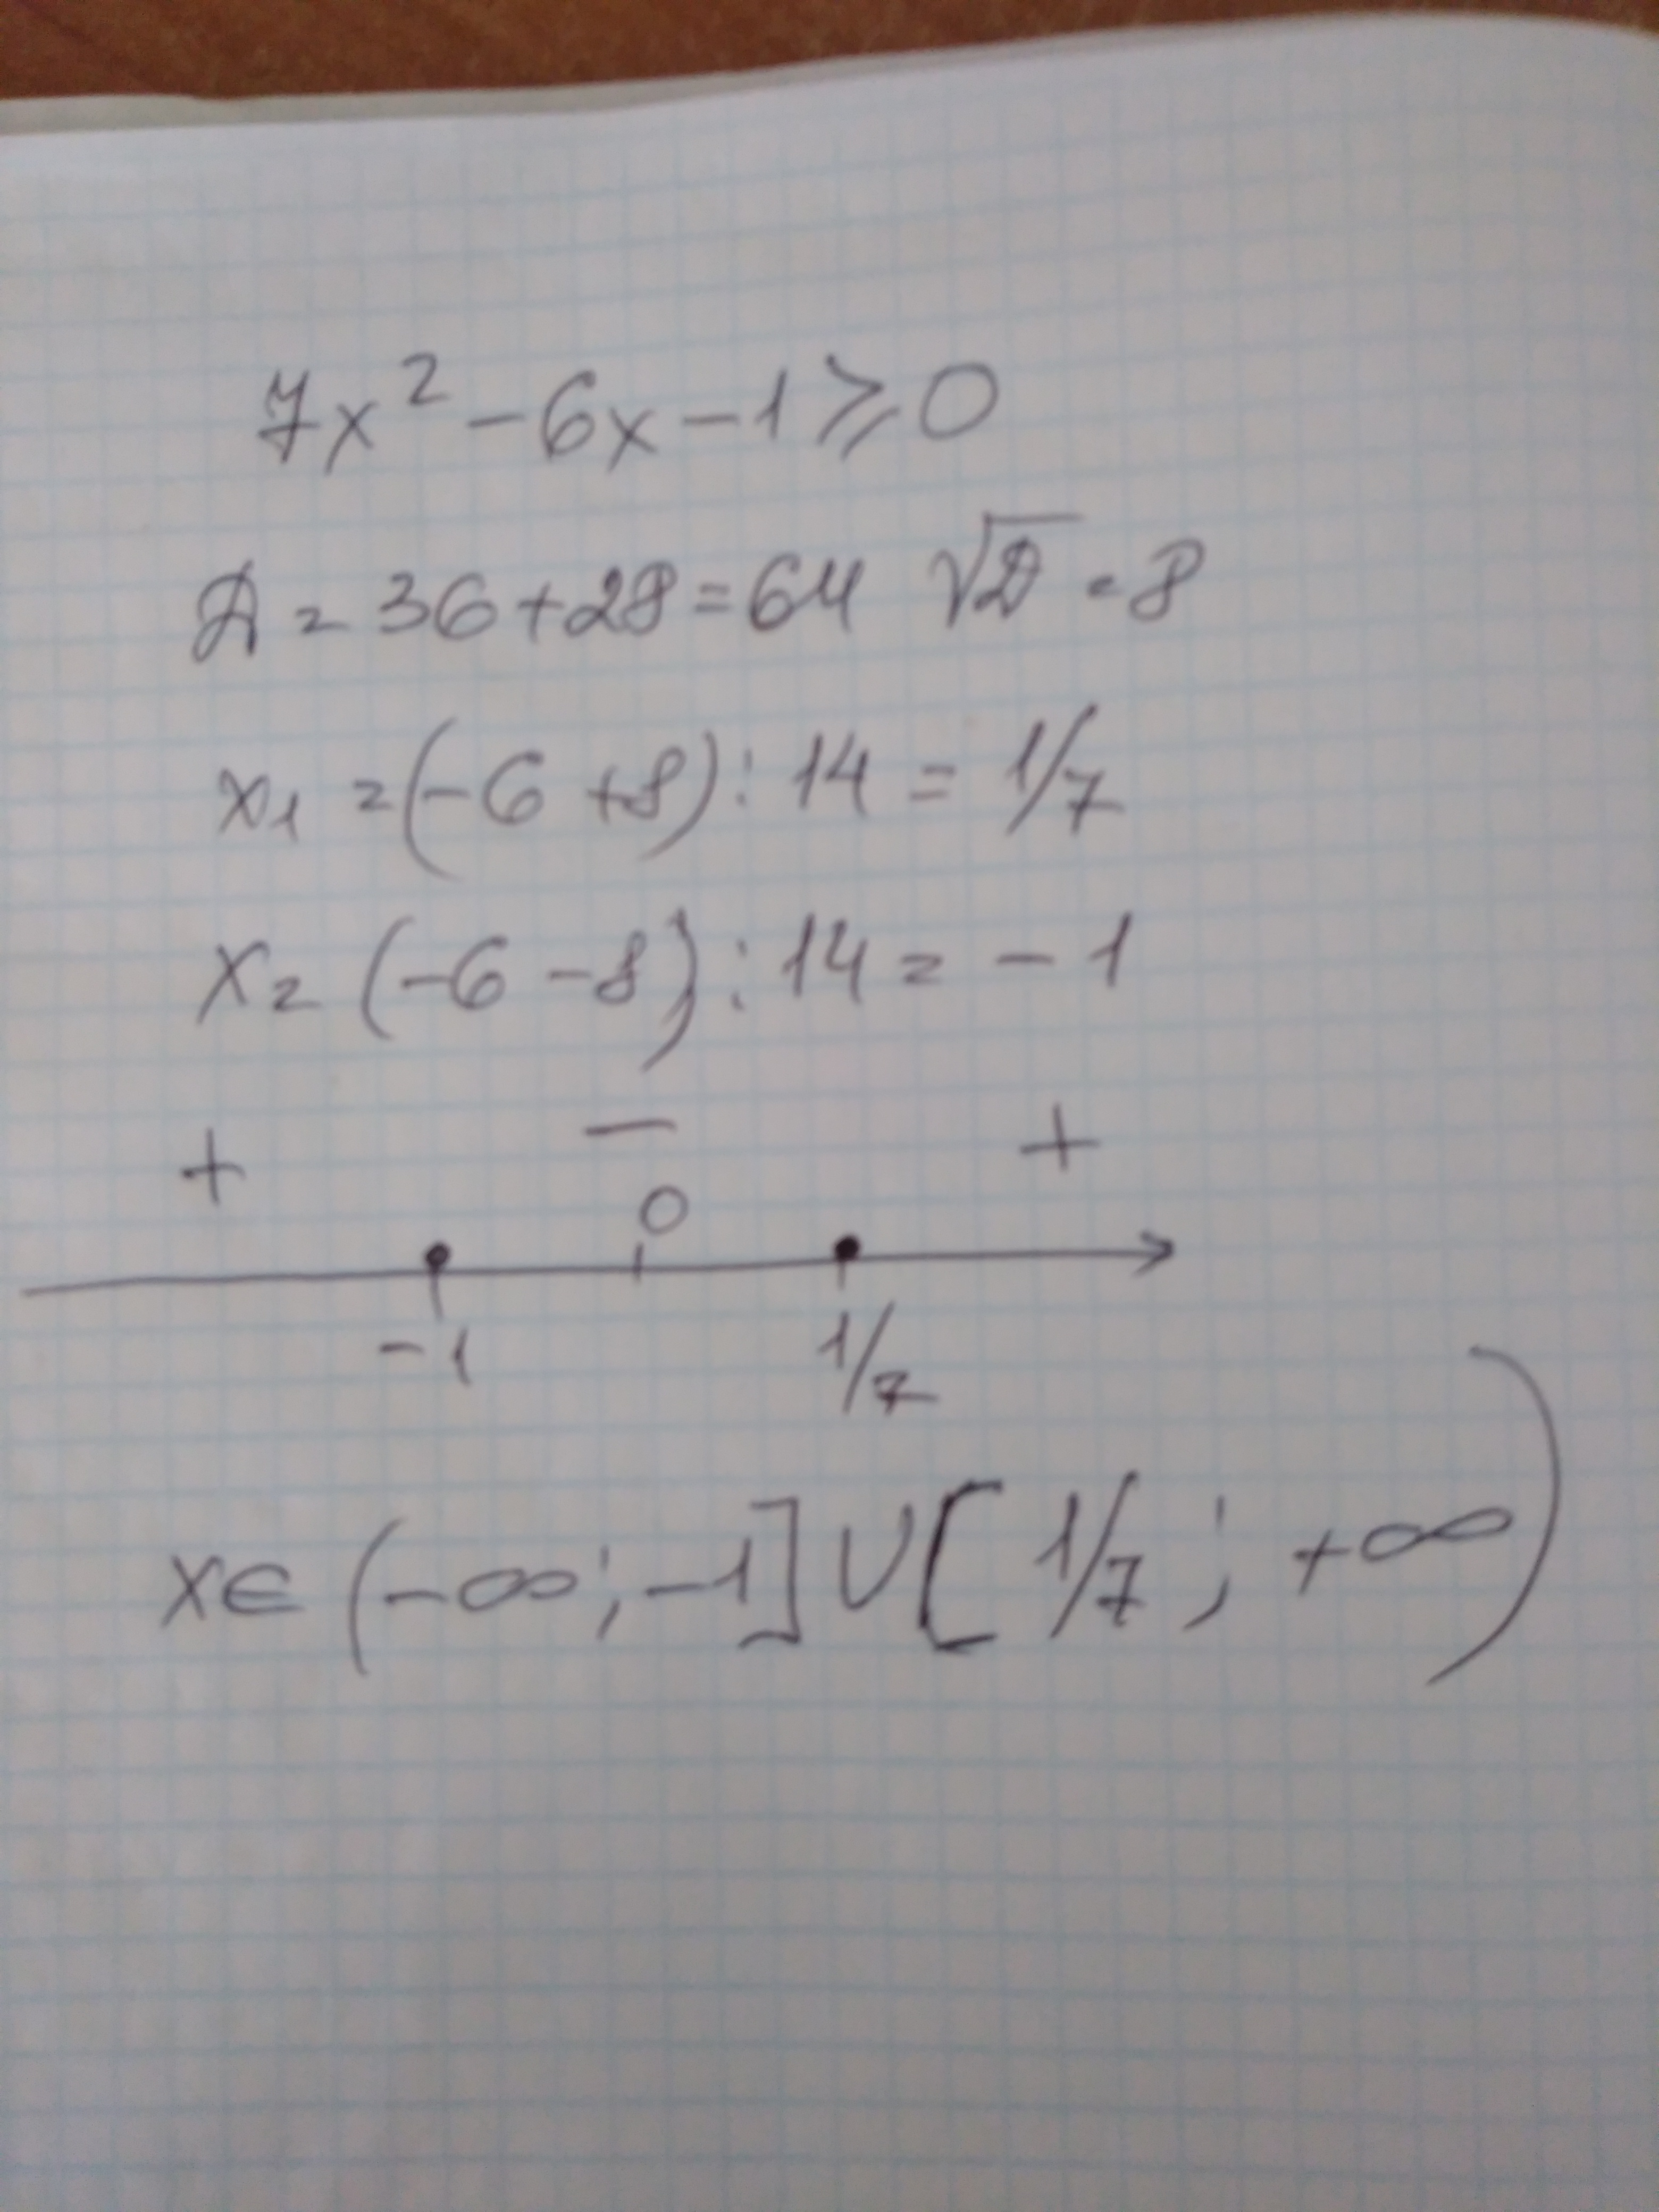 7x² - 6x - 1 ⩾ 0
D = 36 + 28 = 64 √D = 8
x₁ = (-6 + 8) : 14 = 1/7
x₂ (-6 - 8) : 14 = -1
+ — +
0
-1 1/7
x ∈ (-∞; -1] ∪ [1/7; +∞)